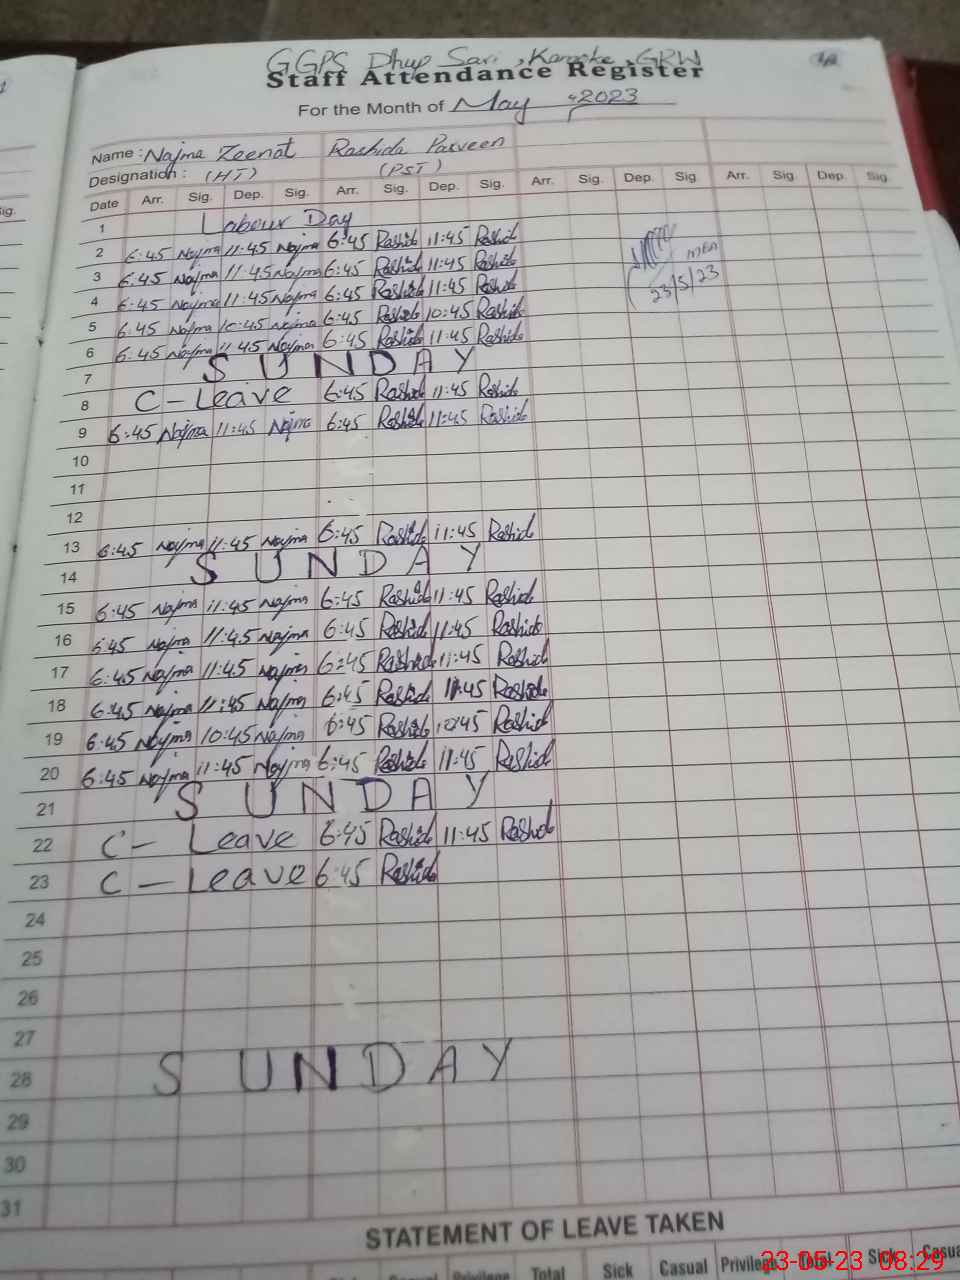 GGPS Dhup Sari, Kamoke, GRW
Staff Attendance Register
For the Month of May 2023
Name: Najma Zeenat Rashida Parveen
Designation: (HT) (PST)
Date Arr. Sig. Dep. Sig. Arr. Sig. Dep. Sig. Arr. Sig. Dep. Sig. Arr. Sig. Dep. Sig.
1 Labour Day
2 6:45 Najma 11:45 Najma 6:45 Rashida 11:45 Rashida
3 6:45 Najma 11:45 Najma 6:45 Rashida 11:45 Rashida MEA
4 6:45 Najma 11:45 Najma 6:45 Rashida 11:45 Rashida 23/5/23
5 6:45 Najma 10:45 Najma 6:45 Rashida 10:45 Rashida
6 6:45 Najma 11:45 Najma 6:45 Rashida 11:45 Rashida
7 SUNDAY
8 C-Leave 6:45 Rashida 11:45 Rashida
9 6:45 Najma 11:45 Najma 6:45 Rashida 11:45 Rashida
10
11
12
13 6:45 Najma 11:45 Najma 6:45 Rashida 11:45 Rashida
14 SUNDAY
15 6:45 Najma 11:45 Najma 6:45 Rashida 11:45 Rashida
16 6:45 Najma 11:45 Najma 6:45 Rashida 11:45 Rashida
17 6:45 Najma 11:45 Najma 6:45 Rashida 11:45 Rashida
18 6:45 Najma 11:45 Najma 6:45 Rashida 11:45 Rashida
19 6:45 Najma 10:45 Najma 6:45 Rashida 10:45 Rashida
20 6:45 Najma 11:45 Najma 6:45 Rashida 11:45 Rashida
21 SUNDAY
22 C-Leave 6:45 Rashida 11:45 Rashida
23 C-Leave 6:45 Rashida
24
25
26
27
28 SUNDAY
29
30
31
STATEMENT OF LEAVE TAKEN
Sick Casual Privilege Total Sick Casual Privilege Total Sick Casua
23-05-23 08:29